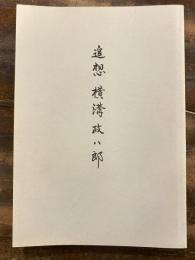 追想 横溝政八郎